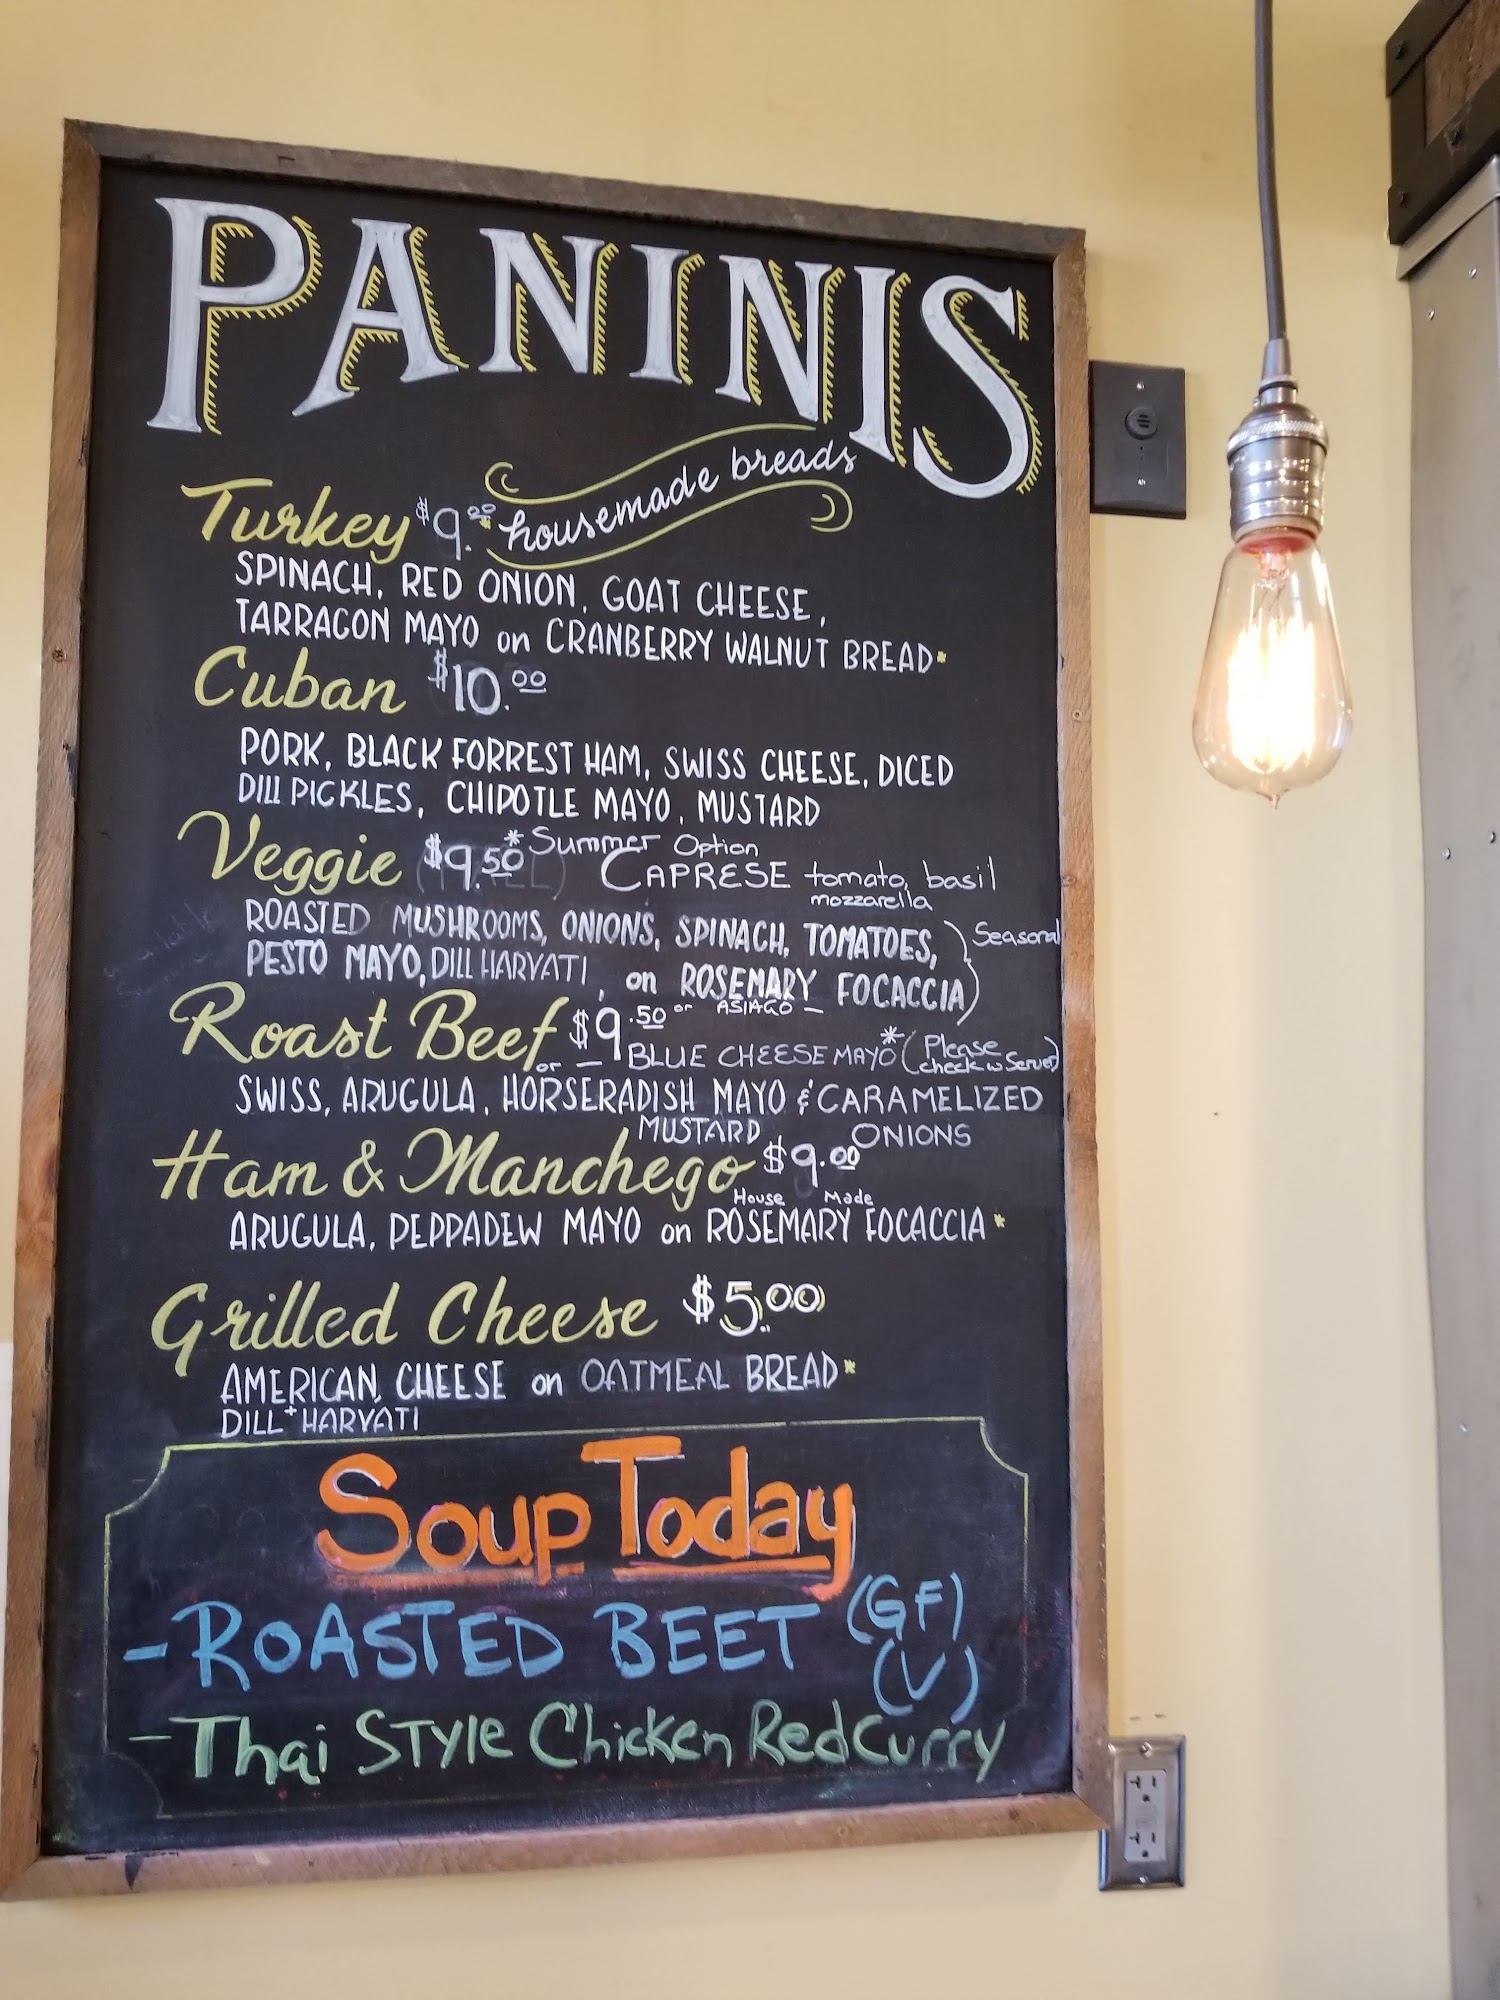 PANINIS
housemade breads
Turkey $9.00
SPINACH, RED ONION, GOAT CHEESE,
TARRAGON MAYO on CRANBERRY WALNUT BREAD*
Cuban $10.00
PORK, BLACK FORREST HAM, SWISS CHEESE, DICED
DILL PICKLES, CHIPOTLE MAYO, MUSTARD
Veggie $9.50 *Summer Option
CAPRESE tomato, basil
mozzarella
ROASTED MUSHROOMS, ONIONS, SPINACH, TOMATOES, Seasonal
PESTO MAYO, DILL HARVATI, on ROSEMARY FOCACCIA)
or ASIAGO
Roast Beef $9.50
or BLUE CHEESE MAYO* (Please
check w Server)
SWISS, ARUGULA, HORSERADISH MAYO & CARAMELIZED
MUSTARD ONIONS
Ham & Manchego $9.00
House Made
ARUGULA, PEPPADEW MAYO on ROSEMARY FOCACCIA*
Grilled Cheese $5.00
AMERICAN CHEESE on OATMEAL BREAD*
DILL + HARVATI
Soup Today
- ROASTED BEET (GF)
(V)
- Thai STYLE Chicken Red Curry